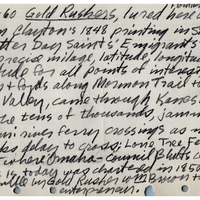 60 Gold Rushers, lured here
Clayton's 1848 printing in S
tter Day Saints' Emigrant's
precise milage, latitude, longitu
tude for all points of interest
& fords along Mormon Trail t
Valley, came through Kanes
the tens of thousands, jamm
uri river ferry crossings as m
ks delay to cross; Lone Tree Fe
where Omaha-Council Bluffs
is today was chartered in 1850
ville in Gold Rusher Wm Brown
entrepeneur.